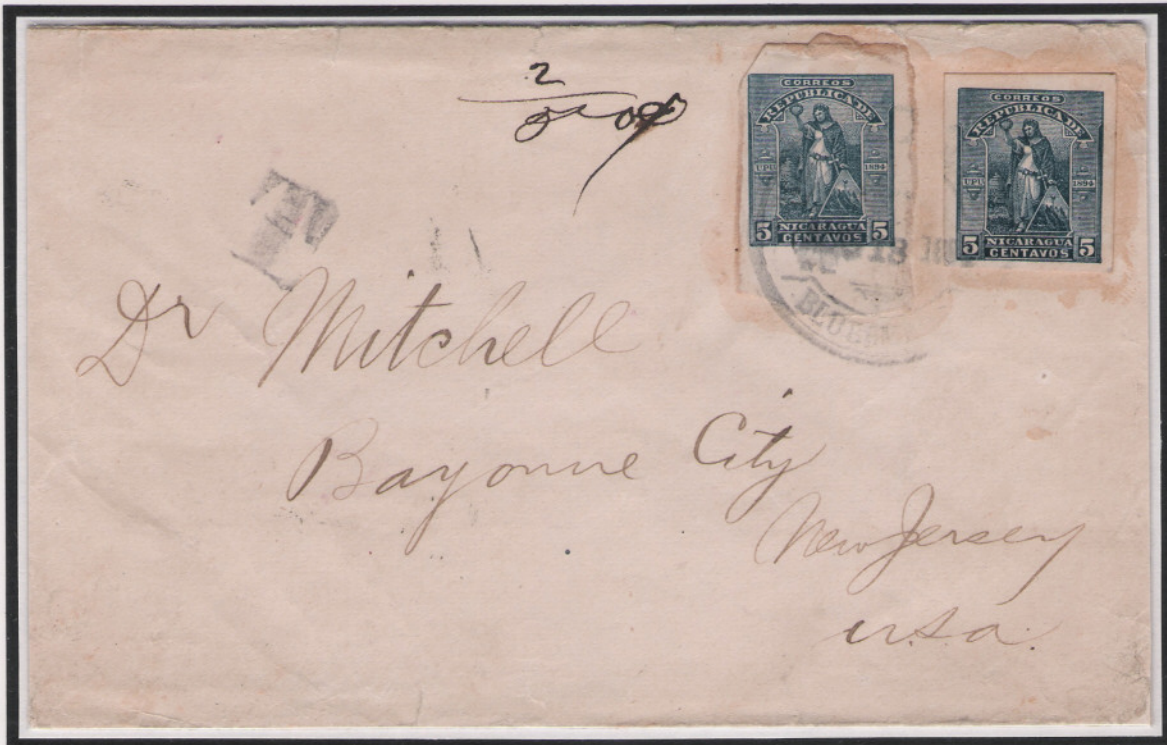 2
CORREOS
REPUBLICA DE
UPU 1894
5 NICARAGUA 5
CENTAVOS
CORREOS
REPUBLICA DE
UPU 1894
5 NICARAGUA 5
CENTAVOS
T
13
Dr Mitchell
Bayonne City
New Jersey
U.S.A.